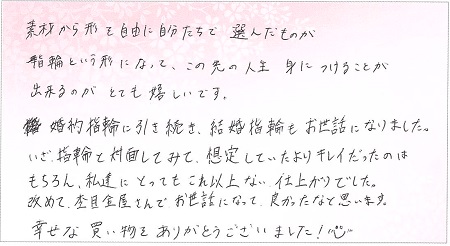 素材から形を自由に自分たちで 選んだものが
指輪という形になって、この先の人生 身につけることが
出来るのが とても嬉しいです。
婚約指輪に引き続き、結婚指輪も お世話になりました。
いざ、指輪と対面してみて、想定していたよりキレイだったのは
もちろん、私達にとっても これ以上ない 仕上がりでした。
改めて、杢目金屋さんで お世話になって、良かったなと思います。
幸せな 買い物を ありがとうございました!